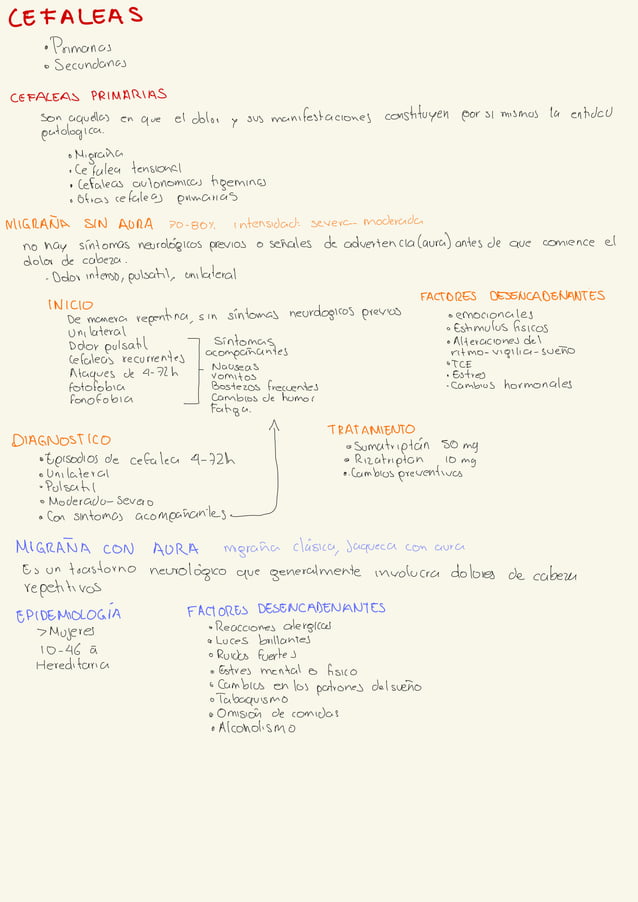 CEFALEAS
• Primarias
• Secundarias
CEFALEAS PRIMARIAS
Son aquellas en que el dolor y sus manifestaciones constituyen por si mismos la entidad
patologica.
• Migraña
• Cefalea tensional
• Cefaleas autonomicas trigeminas
• Otras cefaleas primarias
MIGRAÑA SIN AURA 70-80% intensidad: severa-moderada
no hay síntomas neurológicos previos o señales de advertencia (aura) antes de que comience el
dolor de cabeza.
- Dolor intenso, pulsatil, unilateral
INICIO
De manera repentina, sin síntomas neurologicos previos
Unilateral
Dolor pulsatil
Cefaleas recurrentes
Ataques de 4-72h
fotofobia
fonofobia
Síntomas
acompañantes
Nauseas
vomitos
Bostezos frecuentes
Cambios de humor
Fatiga.
FACTORES DESENCADENANTES
• emocionales
• Estimulos fisicos
• Alteraciones del
ritmo-vigilia-sueño
• TCE
• Estres
• Cambios hormonales
DIAGNOSTICO
• Episodios de cefalea 4-72h
• Unilateral
• Pulsatil
• Moderado-Severo
• Con sintomas acompañantes
TRATAMIENTO
• Sumatriptán 50 mg
• Rizatriptan 10 mg
• Cambios preventivos
MIGRAÑA CON AURA migraña clásica, Jaqueca con aura
Es un trastorno neurológico que generalmente involucra dolores de cabeza
repetitivos
EPIDEMIOLOGÍA
> Mujeres
10-46 a
Hereditaria
FACTORES DESENCADENANTES
• Reacciones alergicas
• Luces brillantes
• Ruidos fuertes
• Estres mental o fisico
• Cambios en los patrones del sueño
• Tabaquismo
• Omisión de comidas
• Alcoholismo